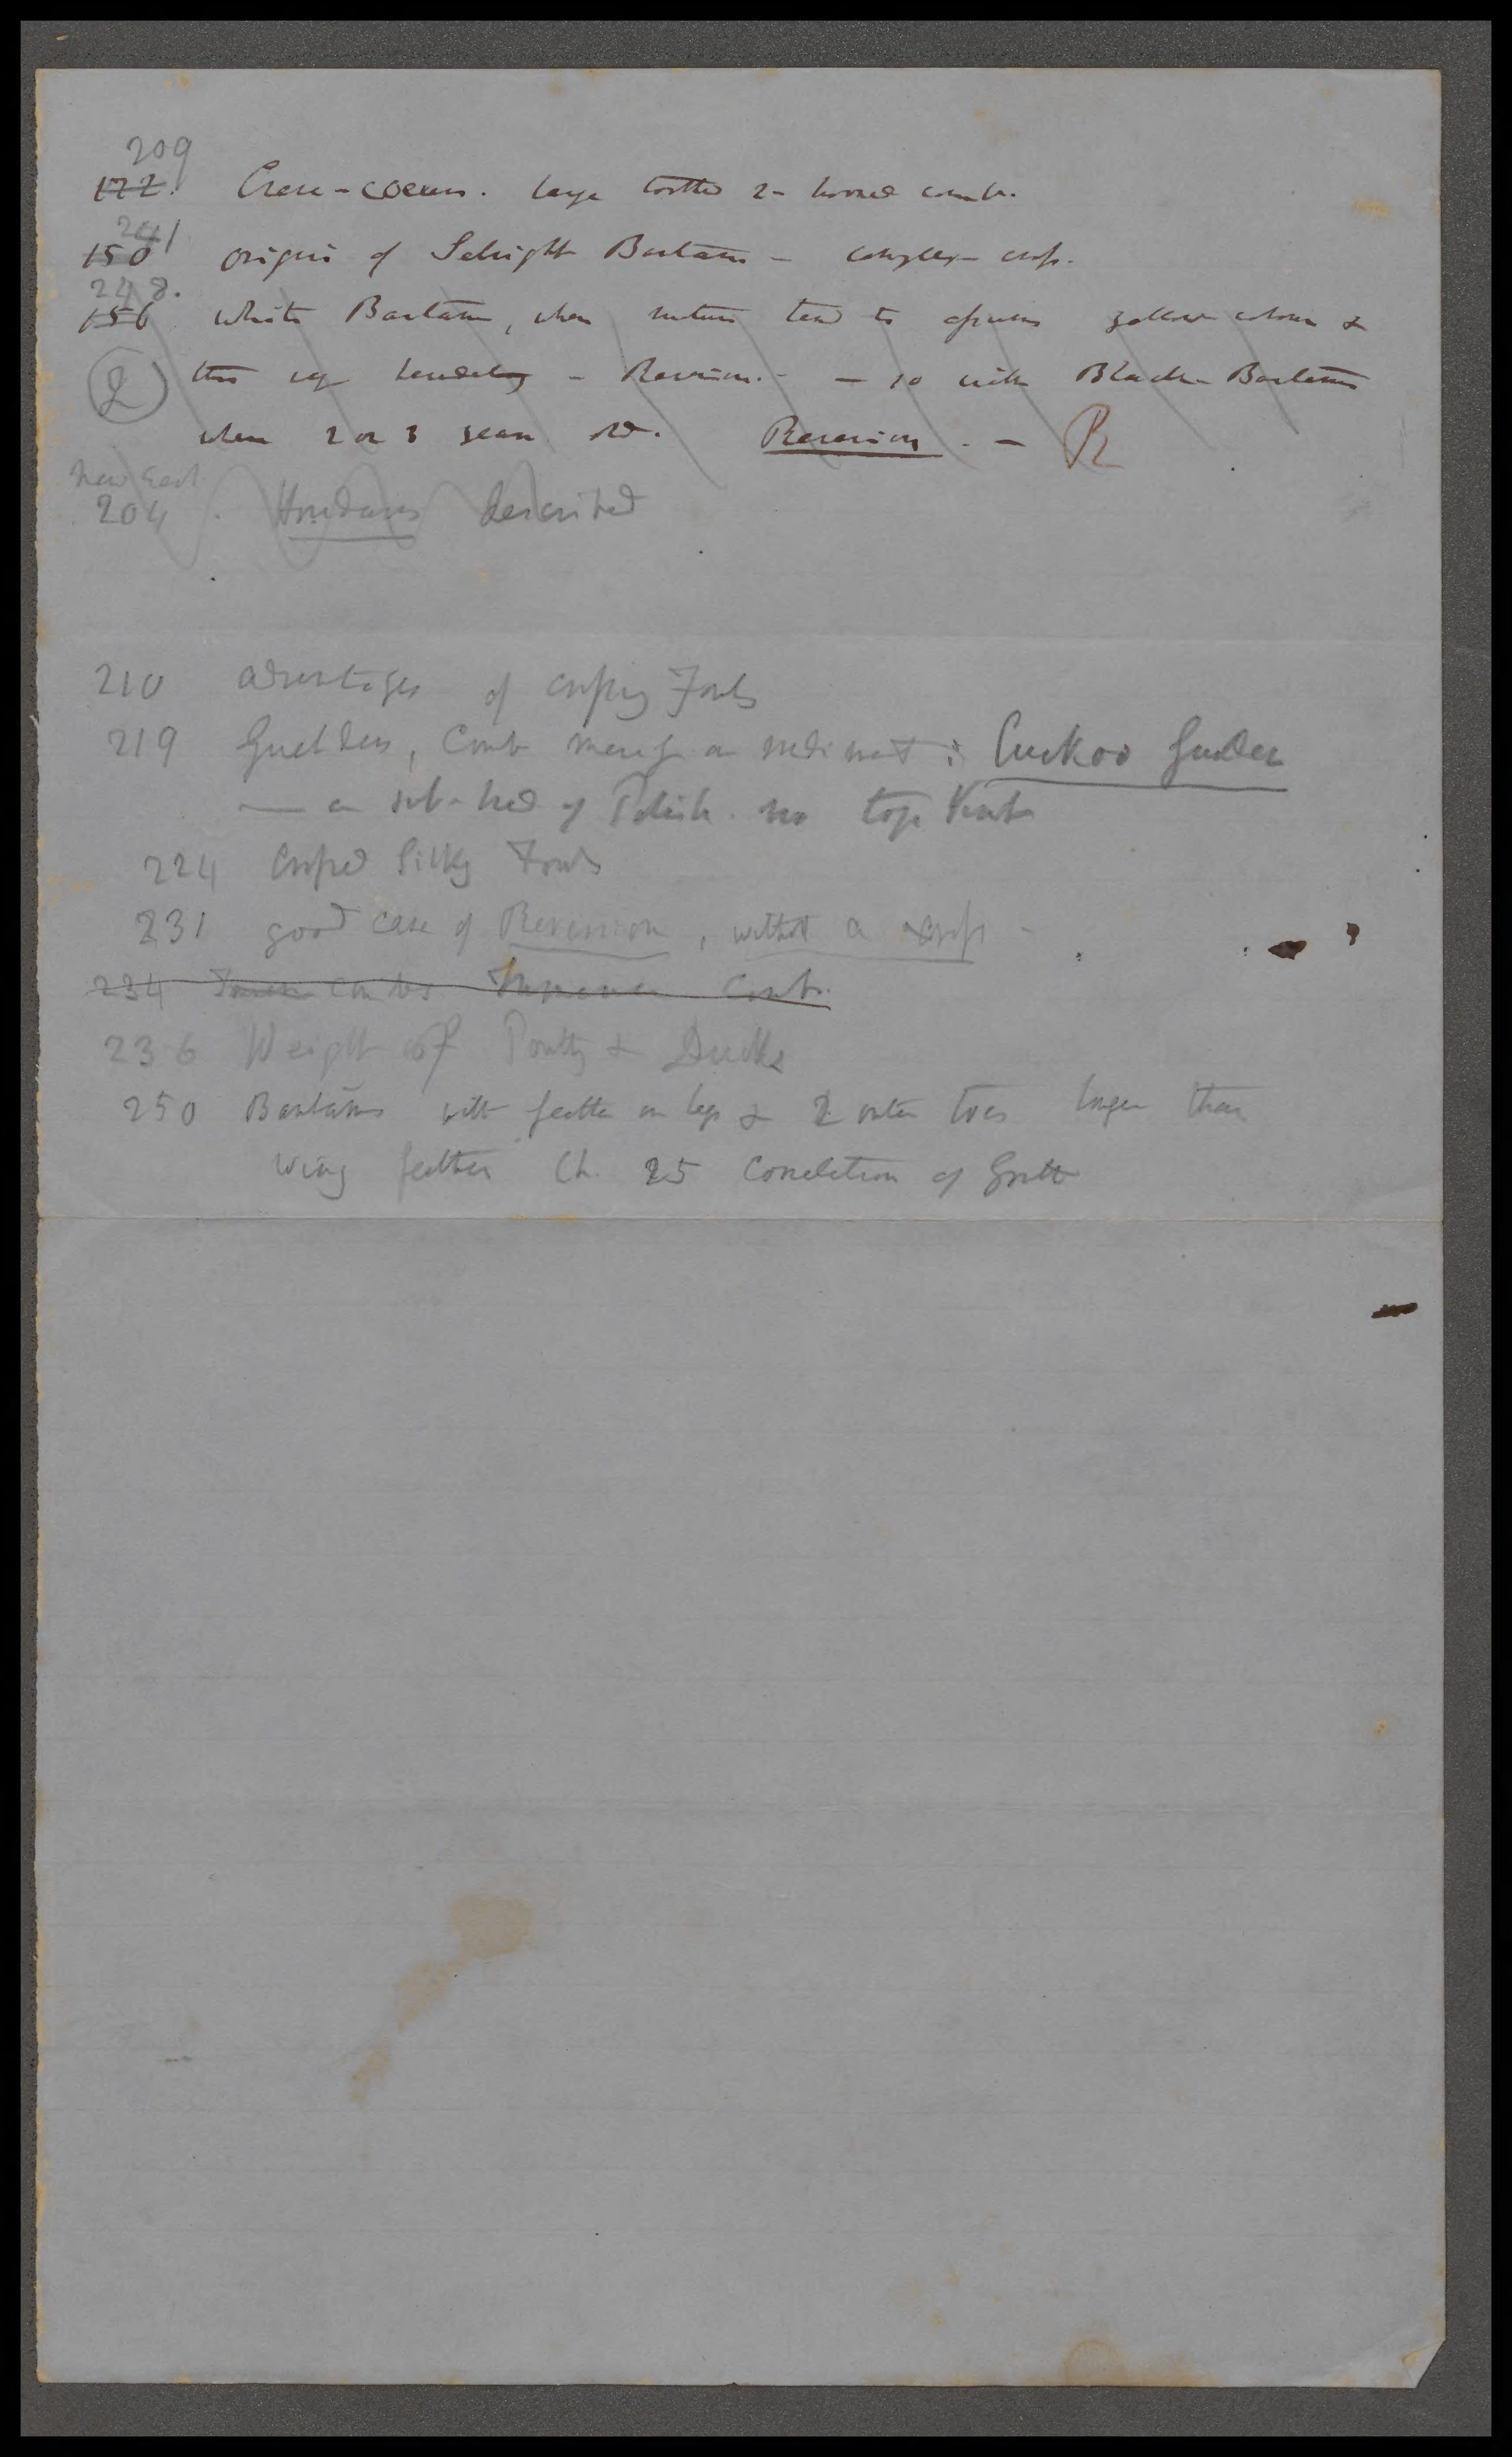 209
122. Creve-coeurs. large toothed 2-horned comb.
241
150 origin of Sebright Bantam – complex cross.
248.
156 White Bantam, when mature tend to assume yellow colour &
(2) this is hereditary – Reversion. – – so with Black Bantams
when 2 or 3 years old. Reversion. – R
New Edit
204. Houdans described
210 advantages of crossing Fowls
219 Guelders, Comb merely a rudiment: Cuckoo Guelder
— a sub-bred of Polish. no top knot
224 Crossed Silky Fowls
231 good case of Reversion, without a cross –
234 combs Comb.
236 Weight of Poultry & Ducks
250 Bantams with feather on legs & 2 outer toes longer than
wing feather Ch. 25 Correlation of Growth